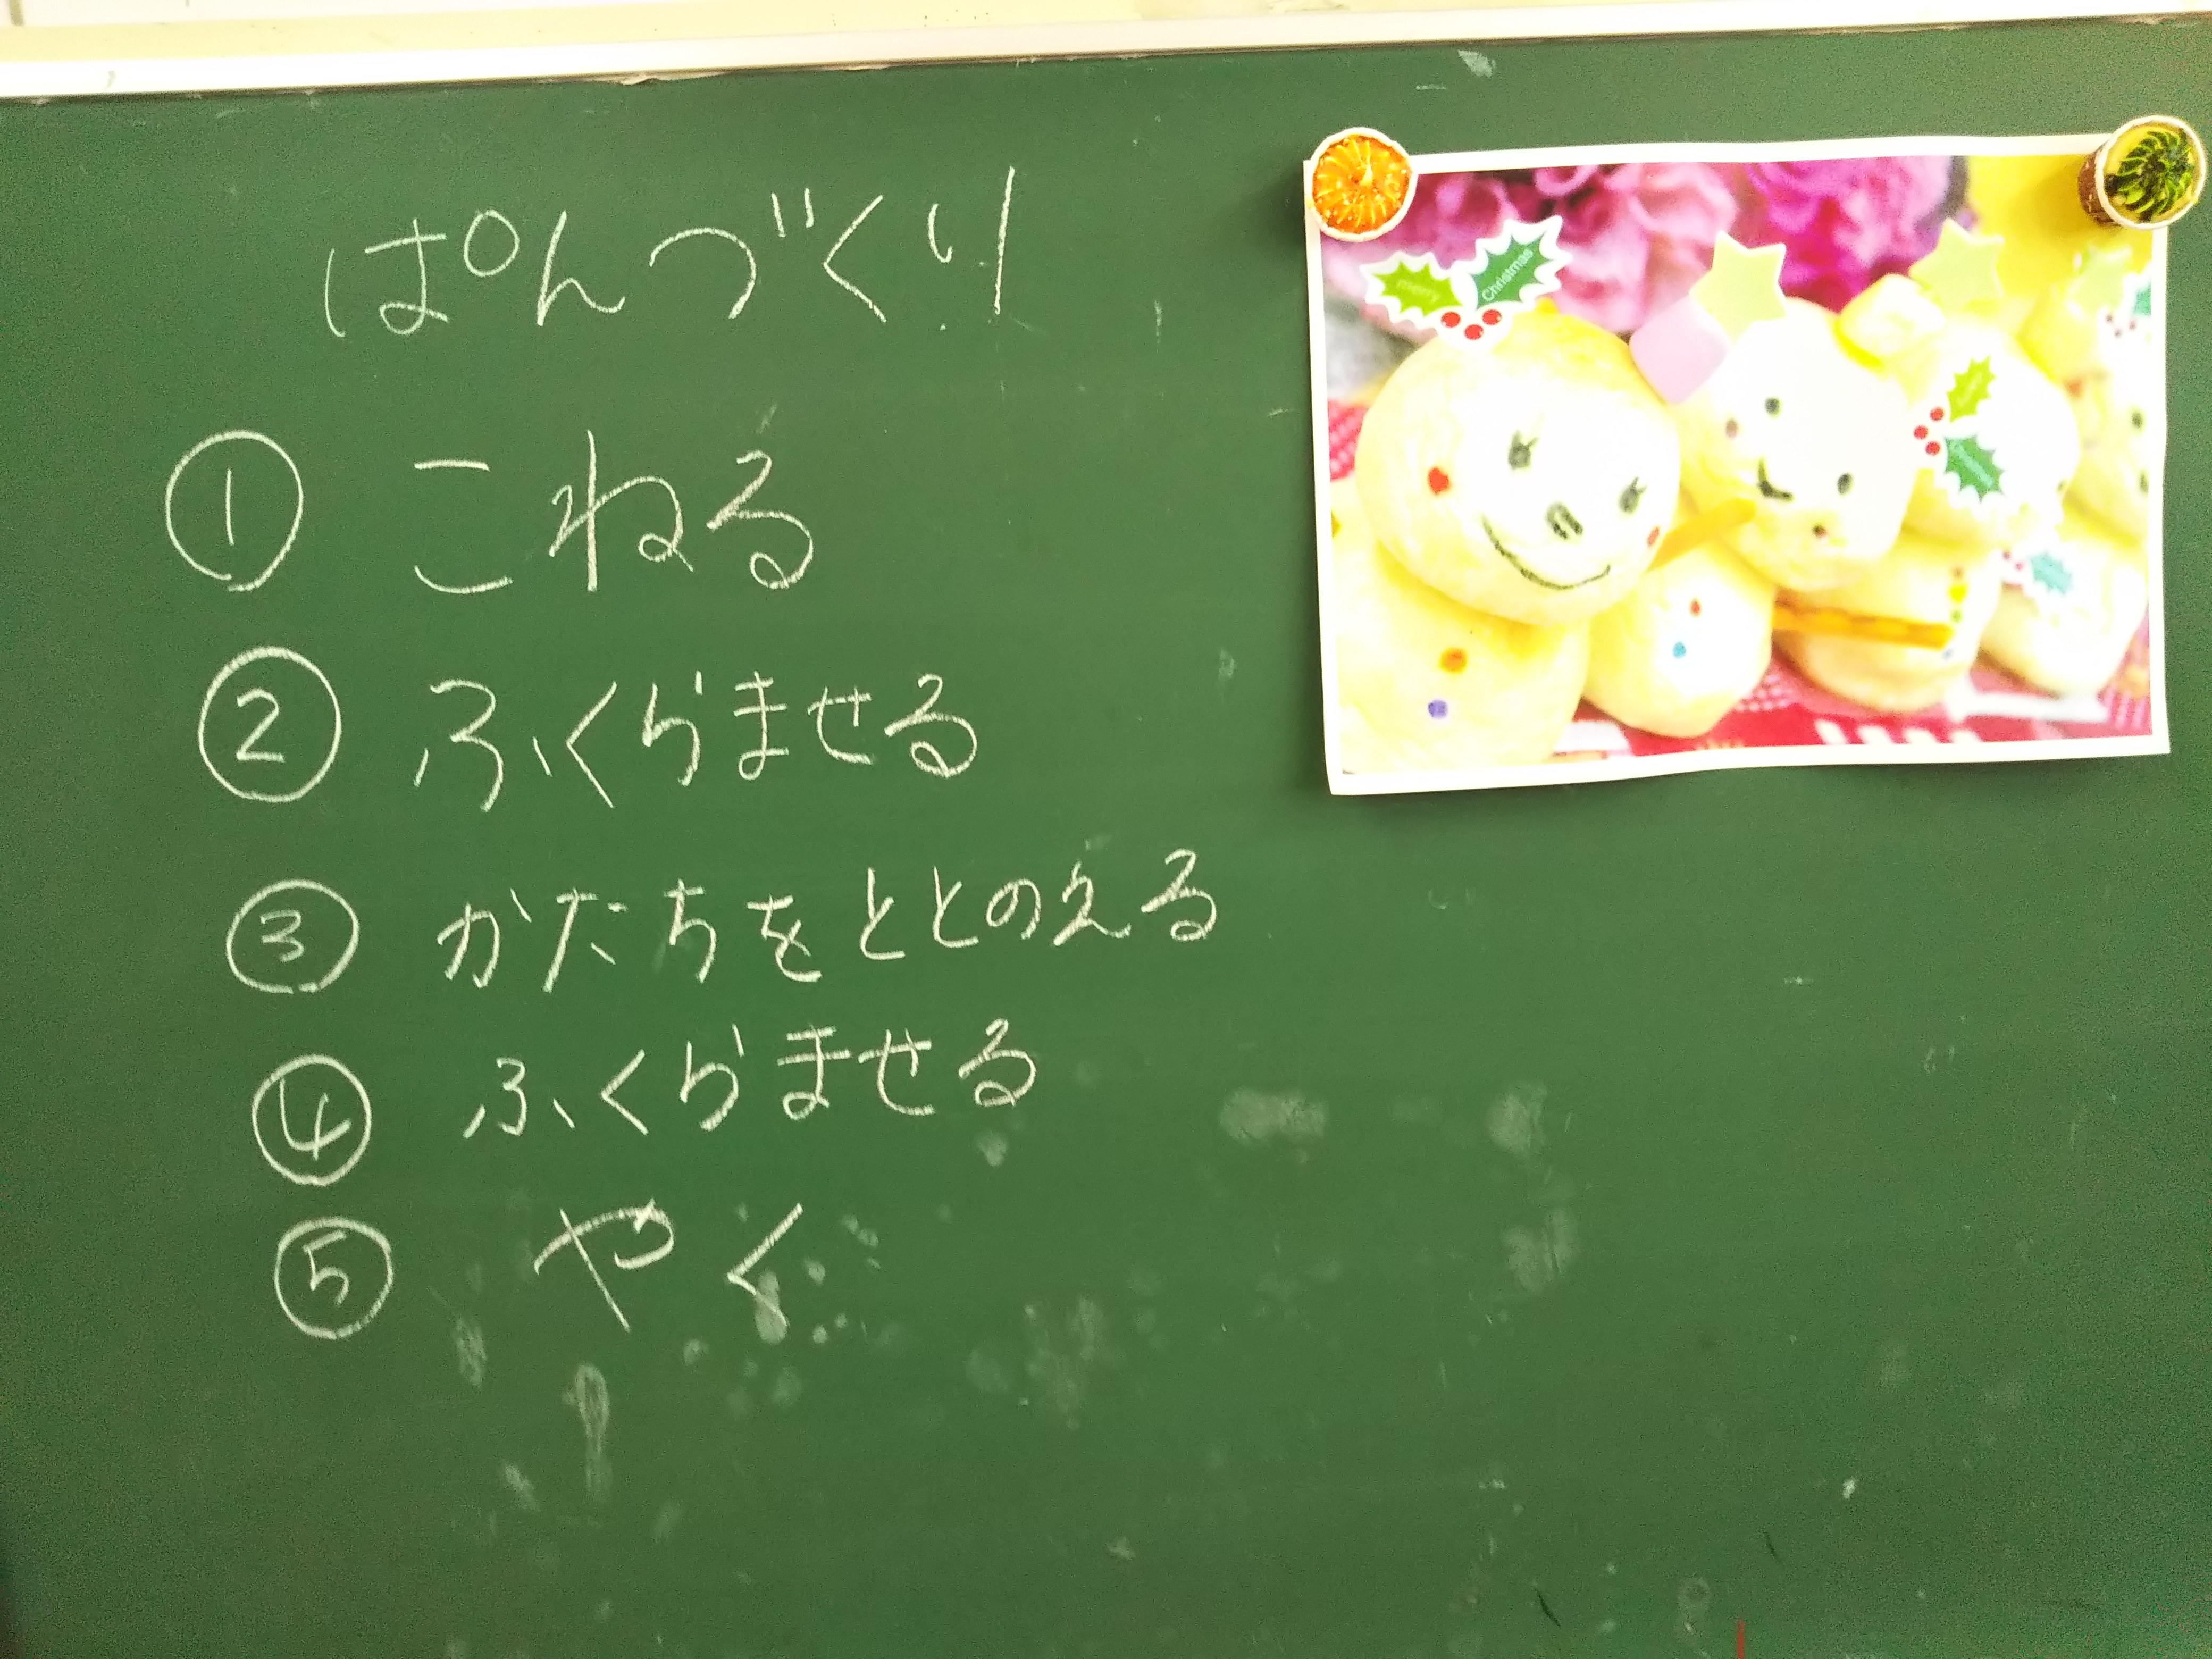 ぱんづくり
① こねる
② ふくらませる
③ かたちをととのえる
④ ふくらませる
⑤ やく
merry
Christmas